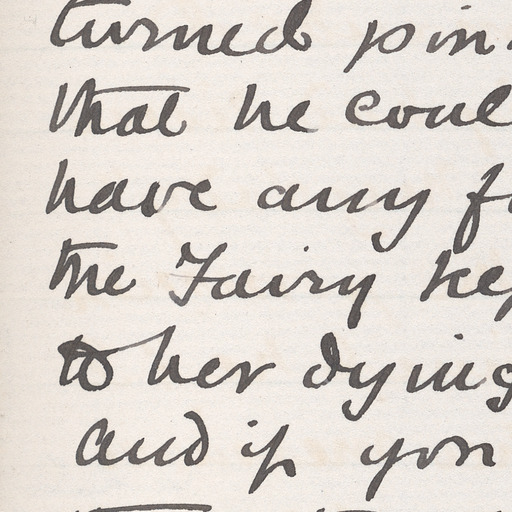 turned pin
that he coul
have any f
the Fairy kep
to her dying
and if you